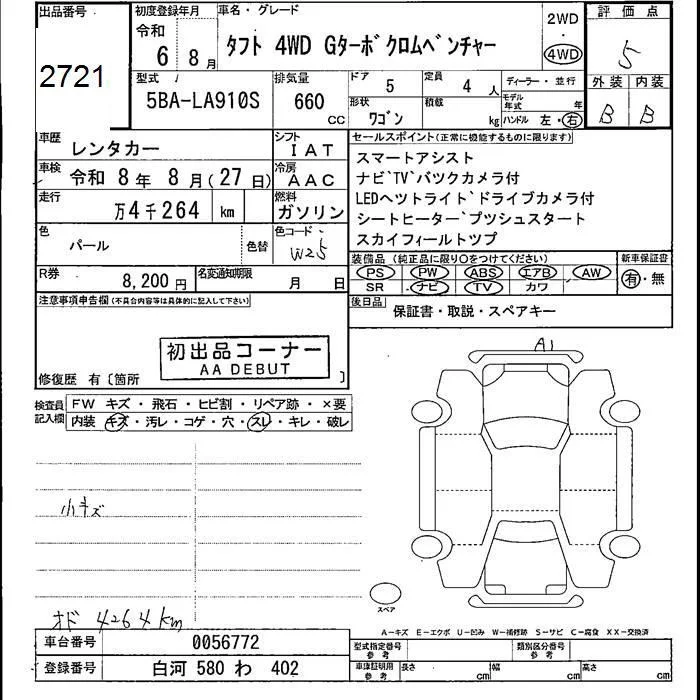 出品番号
2721
初度登録年月
令和
6 年 8 月
車名・グレード
タフト 4WD Gターボ クロムベンチャー
2WD
4WD
評価点
5
型式
5BA-LA910S
排気量
660
CC
ドア
5
定員
4 人
形状
ワゴン
積載
kg
ディーラー・並行
モデル年式
年
ハンドル 左・右
外装 内装
B B
車歴
レンタカー
シフト
IAT
車検
令和 8 年 8 月(27 日)
冷房
AAC
走行
万4千264 km
燃料
ガソリン
色
パール
色替
色コード
W25
R券
8,200 円
名変通知期限
月 日
セールスポイント(正常に機能するものに限ります)
スマートアシスト
ナビ`TV`バツクカメラ付
LEDヘツトライト`ドライブカメラ付
シートヒーター`プツシュスタート
スカイフィールトツプ
装備品 (純正品に限り○をつけてください)
新車保証書
PS PW ABS エアB AW
SR ナビ TV カワ
有・無
後日品
保証書・取説・スペアキー
注意事項申告欄(不具合内容等は具体的に記入して下さい)
初出品コーナー
AA DEBUT
修復歴 有〔箇所 〕
検査員記入欄
FW キズ・飛石・ヒビ割・リペア跡・×要
内装 キズ・汚レ・コゲ・穴・スレ・キレ・破レ
小キズ
オド 4264km
A1
スペア
A−キズ E−エクボ U−凹み W−補修跡 S−サビ C−腐食 XX−交換済
車台番号
0056772
登録番号
白河 580 わ 402
型式指定番号
参考
類別区分番号
参考
車庫証明用
参考
長さ cm
幅 cm
高さ cm